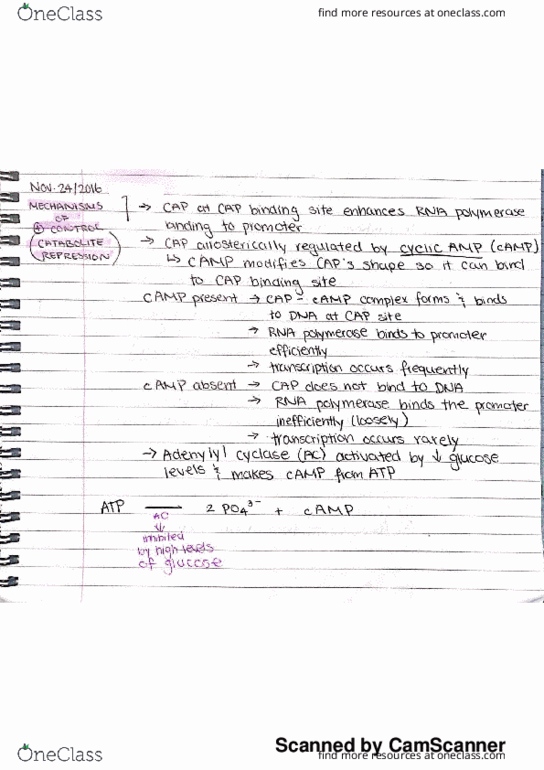 OneClass
find more resources at oneclass.com
Nov. 24/2016
MECHANISMS
OF
⊕ CONTROL
(CATABOLITE
REPRESSION)
→ CAP at CAP binding site enhances RNA polymerase
binding to promoter
→ CAP allosterically regulated by cyclic AMP (cAMP)
↳ cAMP modifies CAP's shape so it can bind
to CAP binding site
cAMP present → CAP - cAMP complex forms & binds
to DNA at CAP site
→ RNA polymerase binds to promoter
efficiently
→ transcription occurs frequently
cAMP absent → CAP does not bind to DNA
→ RNA polymerase binds the promoter
inefficiently (loosely)
→ transcription occurs rarely
→ Adenylyl cyclase (AC) activated by ↓ glucose
levels & makes cAMP from ATP
ATP → 2 PO4³⁻ + cAMP
AC
↓
inhibited
by high levels
of glucose
Scanned by CamScanner
OneClass
find more resources at oneclass.com